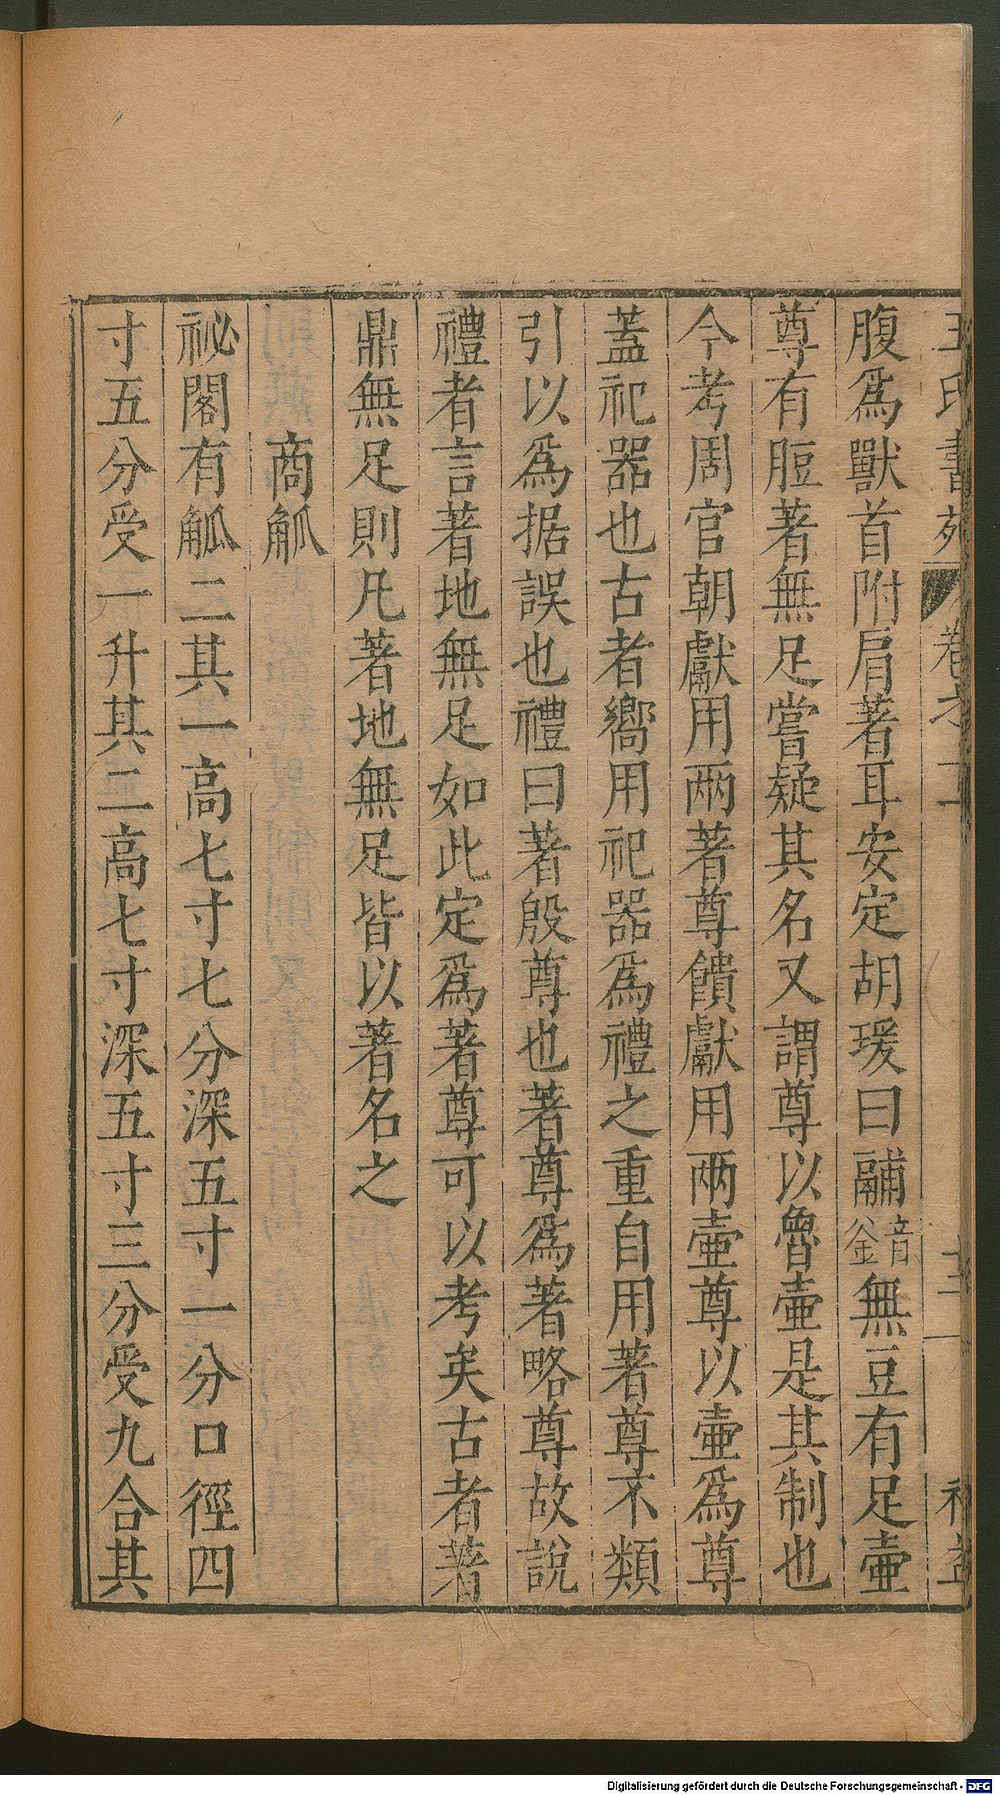 王氏書苑 卷之五 補益
腹爲獸首附肩著耳安定胡瑗曰鬴音釜無豆有足壷
尊有脰著無足嘗疑其名又謂尊以魯壷是其制也
今考周官朝獻用两著尊饋獻用两壷尊以壷爲尊
蓋祀器也古者嚮用祀器爲禮之重自用著尊不類
引以爲据誤也禮曰著殷尊也著尊爲著略尊故說
禮者言著地無足如此定爲著尊可以考矣古者著
鼎無足則凡著地無足皆以著名之
商觚
祕閣有觚二其一高七寸七分深五寸一分口徑四
寸五分受一升其二高七寸深五寸三分受九合其
Digitalisierung gefördert durch die Deutsche Forschungsgemeinschaft - DFG